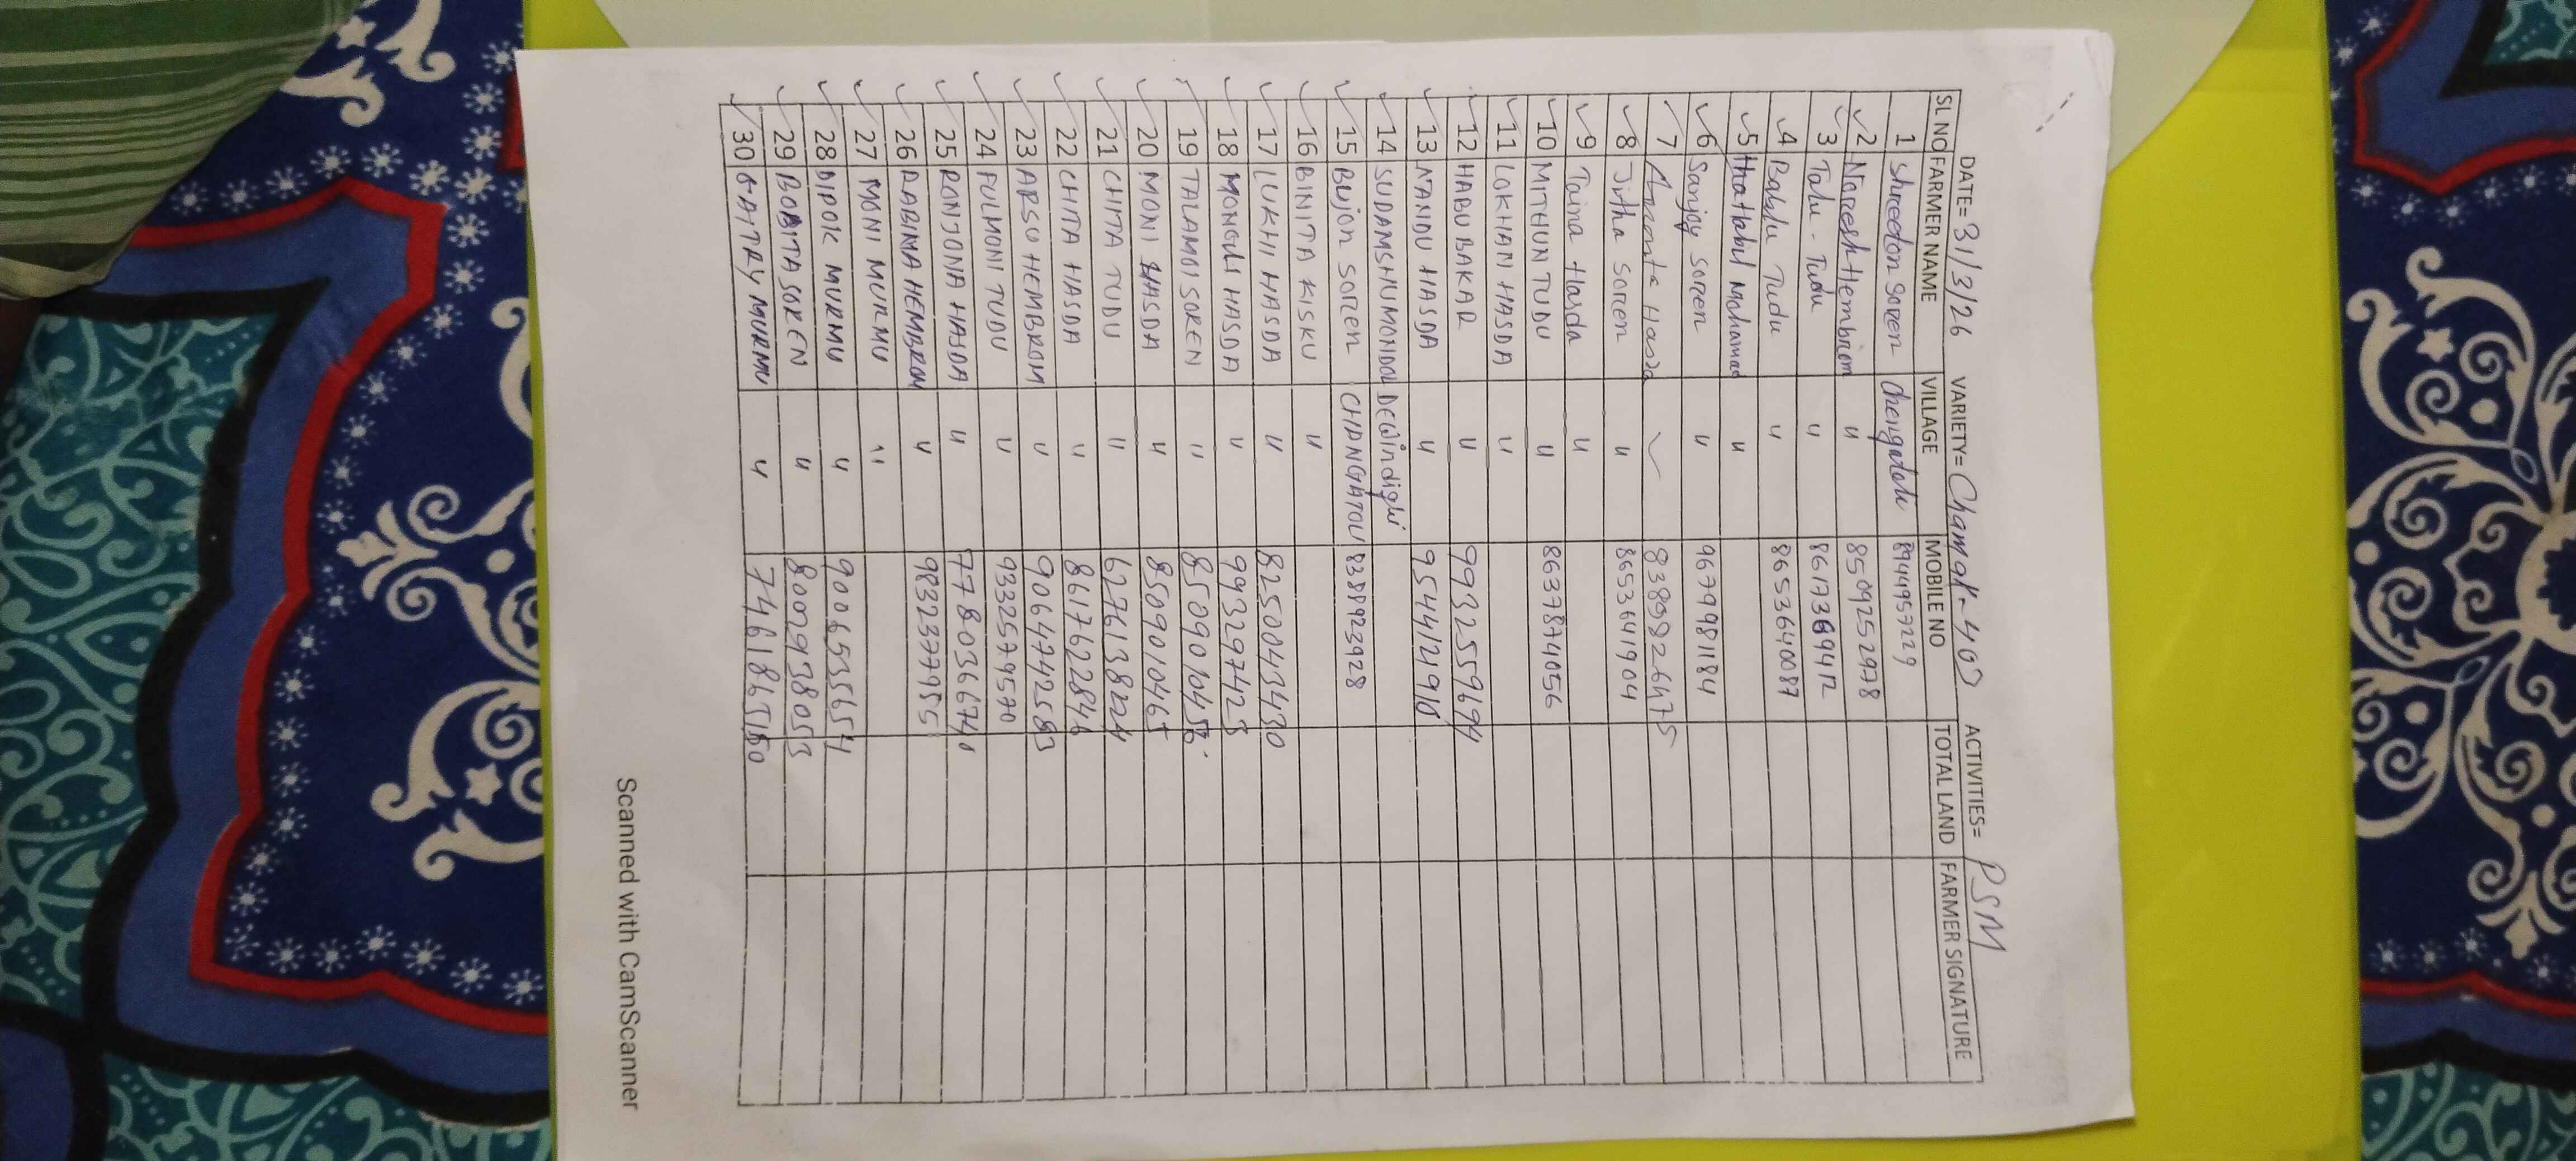 DATE= 31/3/26 VARIETY= ACTIVITIES= PSM
SL NO FARMER NAME VILLAGE MOBILE NO TOTAL LAND FARMER SIGNATURE
1 Shreeton Soren 8944957229
2 Naresh Hembrom " 8509252978
3 Talu - Tudu " 8617369412
4 Bablu Tudu " 8653640087
5 Mohamad "
6 Sanjoy Soren " 9679981184
7 Hasda
8 Jitha Soren " 8653641904
9 Taina Hasda "
10 MITHUN TUDU " 8637874056
11 LOKHAN HASDA "
12 HABU BAKAR " 9932559694
13 NANDU HASDA "
14 SUDAMSHU MONDAL Dewindighi
15 Bujon Soren CHANGATOU 8388923928
16 BINITA KISKU "
17 LUKHI HASDA " 8250043430
18 MONGLI HASDA " 9932974423
19 TALAMOI SOREN "
20 MONI HASDA " 8509010465
21 CHITA TUDU " 6276138224
22 CHITA HASDA " 8617622846
23 ARSU HEMBROM "
24 FULMONI TUDU " 9332579570
25 RONJONA HASDA "
26 RABINA HEMBROM " 9832377955
27 MONI MURMU "
28 DIPOK MURMU " 9006535654
29 BOBITA SOREN " 8009938053
30 GAITRY MURMU "
Scanned with CamScanner